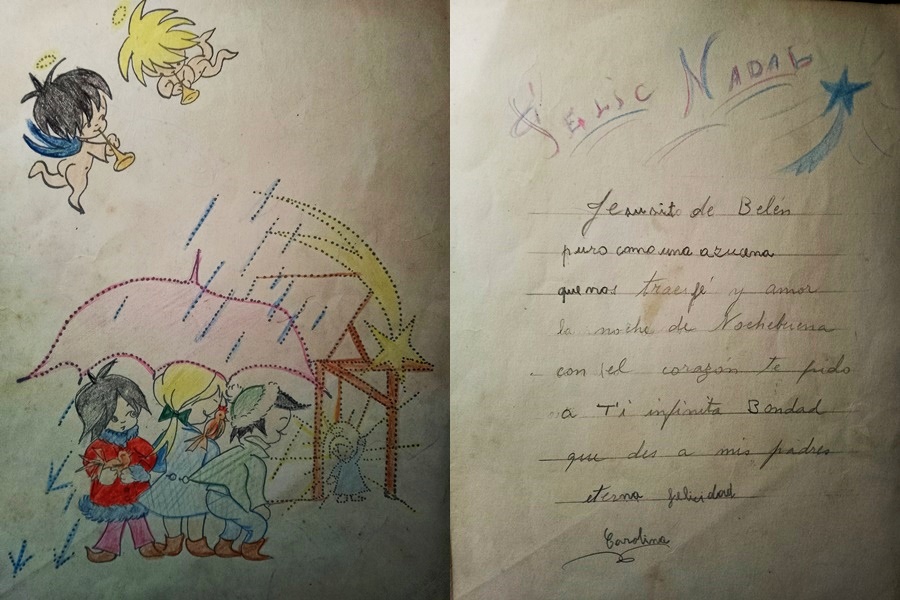 Felic Nadal
Jesusito de Belén
puro como una azucena
que nos trae fé y amor
la noche de Nochebuena
con el corazón te pido
a Ti infinita Bondad
que des a mis padres
eterna felicidad
Carolina